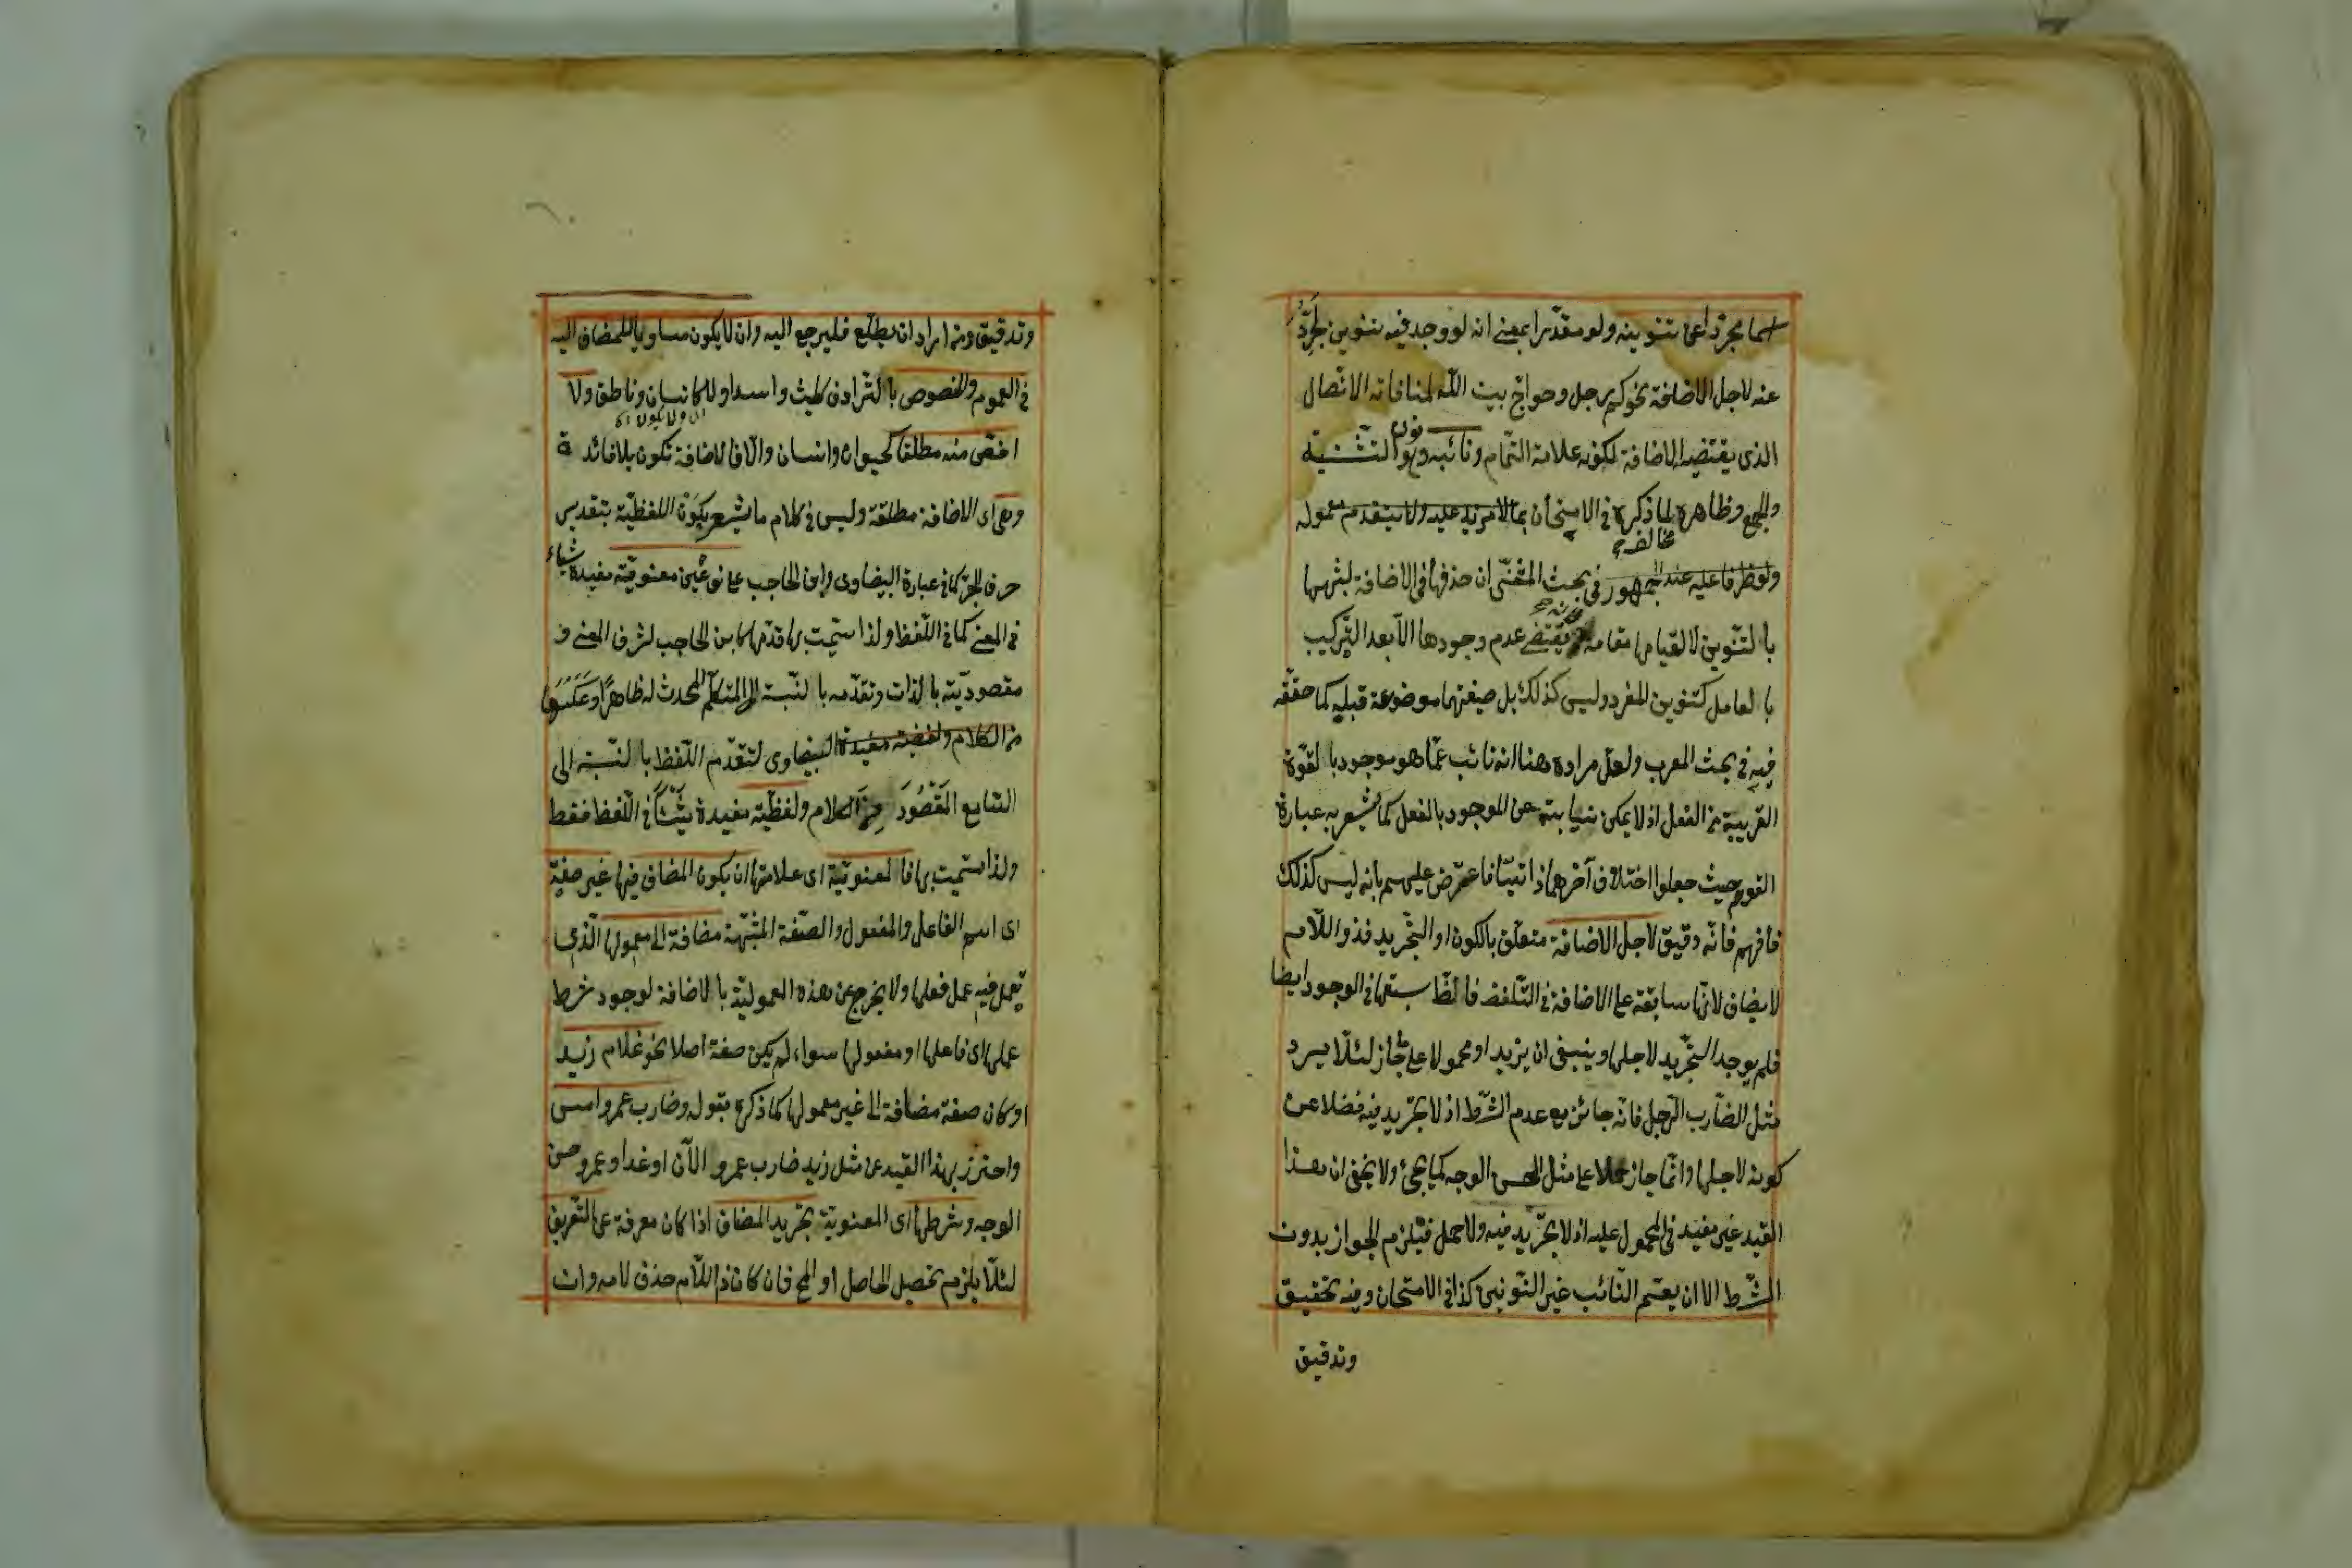 اسما مجرّدا عن تنوينه ولو مقدّرا بمعنى انه لو وجد فيه تنوين لجرّد
عنه لاجل الاضافة نحو كم رجل وحواجّ بيت اللّه لمنافاته الاتّصال
الذى يقتضيه الاضافة لكونه علامة التّمام ونائبه وهو نون التّثنية
والجمع وظاهره لما ذكره فى الامتحان بما لا مزيد عليه ولا يتقدم معموله
ولفظ فاعليه عند الجمهور مخالف فى بحث المثنّى ان حذفها فى الاضافة لشبهها
بالتّنوين لا لقيامها مقامه يقتضى عدم وجودها الّا بعد التّركيب
بالعامل كتنوين المفرد وليس كذلك بل صيغتها موضوعة قبليه كما حقّقه
فيه فى بحث المعرب ولعلّ مراده هنا انه نائب عمّا هو موجود بالقوّة
القريبة من الفعل اذ لا يمكن نيابته عن الموجود بالفعل كما يشعر به عبارة
القوم حيث جعلوا اختلاف آخرهما ذاتيّا فاعترض عليهم بانه ليس كذلك
فافهم فانّه دقيق لاجل الاضافة متعلّق بالكون او التّجريد فذو اللّام
لا يضاف لانّها سابقة على الاضافة فى التّلفظ فالظّ سبقها فى الوجود ايضا
فلم يوجد التّجريد لاجلها وينبغى ان يزيد او محمولا على جاز لئلّا يرد
مثل الضّارب الرّجل فانّه جائز مع عدم الشّرط اذ لا تجريد فيه فضلا عن
كونه لاجلها وانّما جاز حملا على مثل الحسن الوجه كما يجئ ولا يخفى ان هذا
القيد غير مفيد فى المحمول عليه اذ لا تجريد فيه ولا حمل فيلزم الجواز بدون
الشّرط الا ان يعتم النّائب غير التّنوين كذا فى الامتحان وفيه تحقيق
وتدقيق
وتدقيق ومن اراد ان يطّلع فليرجع اليه وان لا يكون مساويا للمضاف اليه
فى العموم والخصوص بالتّرادف كليث واسد او لا كانسان وناطق ولا
اخصّ منه مطلقا كحيوان وانسان والّا فالاضافة تكون بلا فائدة
وهى اى الاضافة مطلقة وليس فى كلام ما يشعر بكون اللفظيّة بتقدير
حرف الجرّ كما فى عبارة البيضاوى وابن الحاجب على نوعين معنويّة مفيدة شياء
فى المعنى كما فى اللّفظ ولذا سمّيت بها قدّمها كابن الحاجب لشرف المعنى و
مقصوديّته بالذات وتقدّمه بالنّسبة الى المتكلّم المحدث له ظاهرا وعكسها
من الكلام ولفضية مفيدة البيضاوى لتقدّم اللّفظ بالنّسبة الى
السّامع المقصود من الكلام ولفظيّة مفيدة شيئا فى اللّفظ فقط
ولذا سمّيت بها فالمعنويّة اى علامتها ان يكون المضاف فيها غير صفة
اى اسم الفاعل والمفعول والصّفة المشبّهة مضافة الى معمولها الّذى
تعمل فيه عمل فعلها ولا يخرج عن هذه المعموليّة بالاضافة لوجود شرط
عملها اى فاعلها او مفعولها سواء لم يكن صفة اصلا نحو غلام زيد
او كان صفة مضافة الى غير معمولها كما ذكره بقوله وضارب عمرو امس
واحترز بهذا القيد عن مثل زيد ضارب عمرو الآن او غدا وعمرو حسن
الوجه وشرطها اى المعنويّة تجريد المضاف اذا كان معرفة عن التّعريف
لئلّا يلزم تحصيل الحاصل او المح فان كان ذا اللّام حذف لامه وان